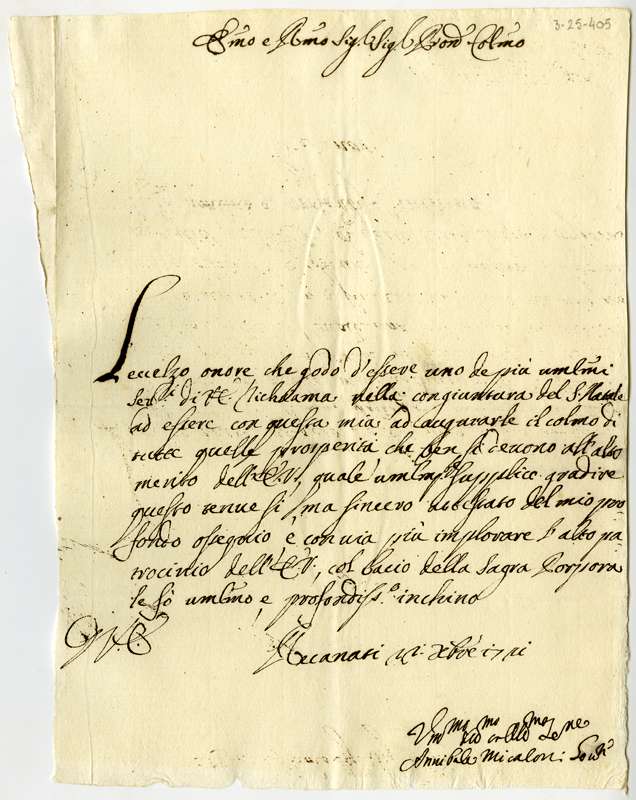 3-25-405
Em̃o e Rm̃o Sig.r Sig.r Pron̄ Colm̃o
L'eccelzo onore che godo d'essere uno de più umlm̃i
ser.ri di V.E. richiama nella congiuntura del S. Natale
ad essere con questa mia ad augurarle il colmo di
tutte quelle prosperità che ben si devono all'alto
merito dell'E.V., quale umlm.te supplico gradire
questo tenue sì, ma sincero attestato del mio pro
fondo ossequio è con via più implorare l'alto pa
trocinio dell'E.V., col bacio della Sagra Porpora
le fò umlm̃o, e profondiss.o inchino
V.E.
Recanati Xbre 1711
Um.mo
Annibale Micaloni